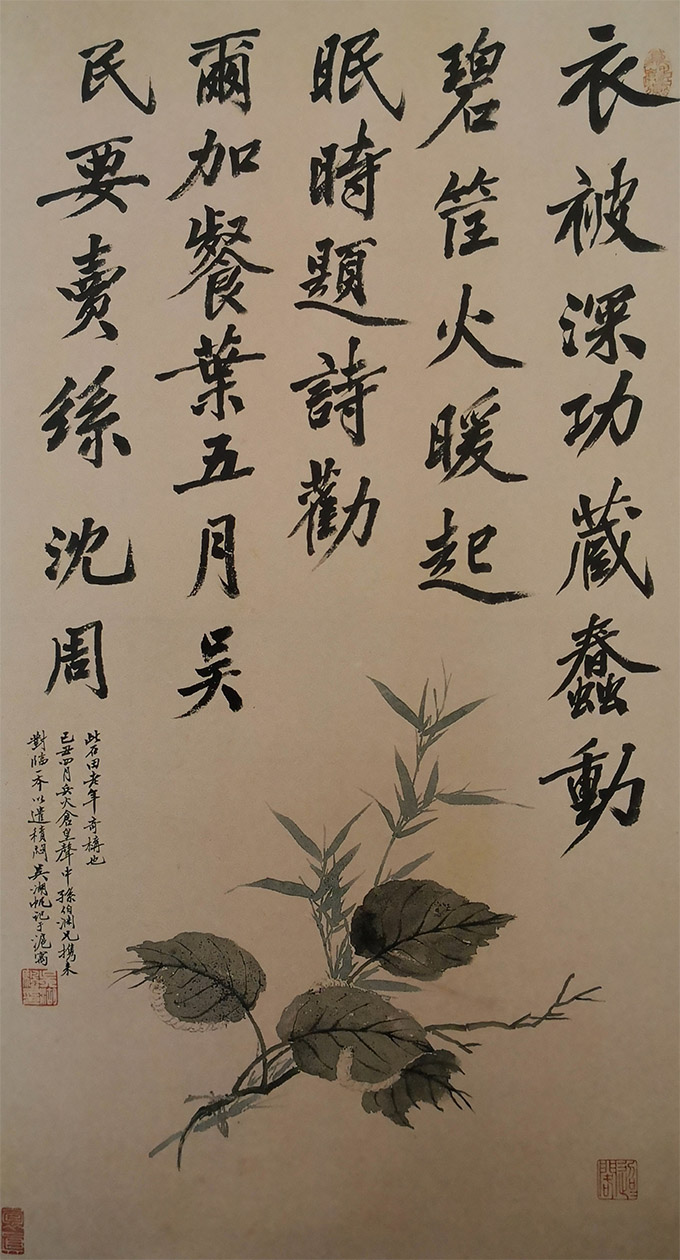 衣被深功藏蠢動
碧筐火暖起
眠時題詩勸
爾加餐葉五月吳
民要賣絲 沈周
此石田老年奇構也
己丑四月兵火倉皇聲中孫伯淵兄攜來
對臨一本以遣積悶 吳湖帆記于滬寓